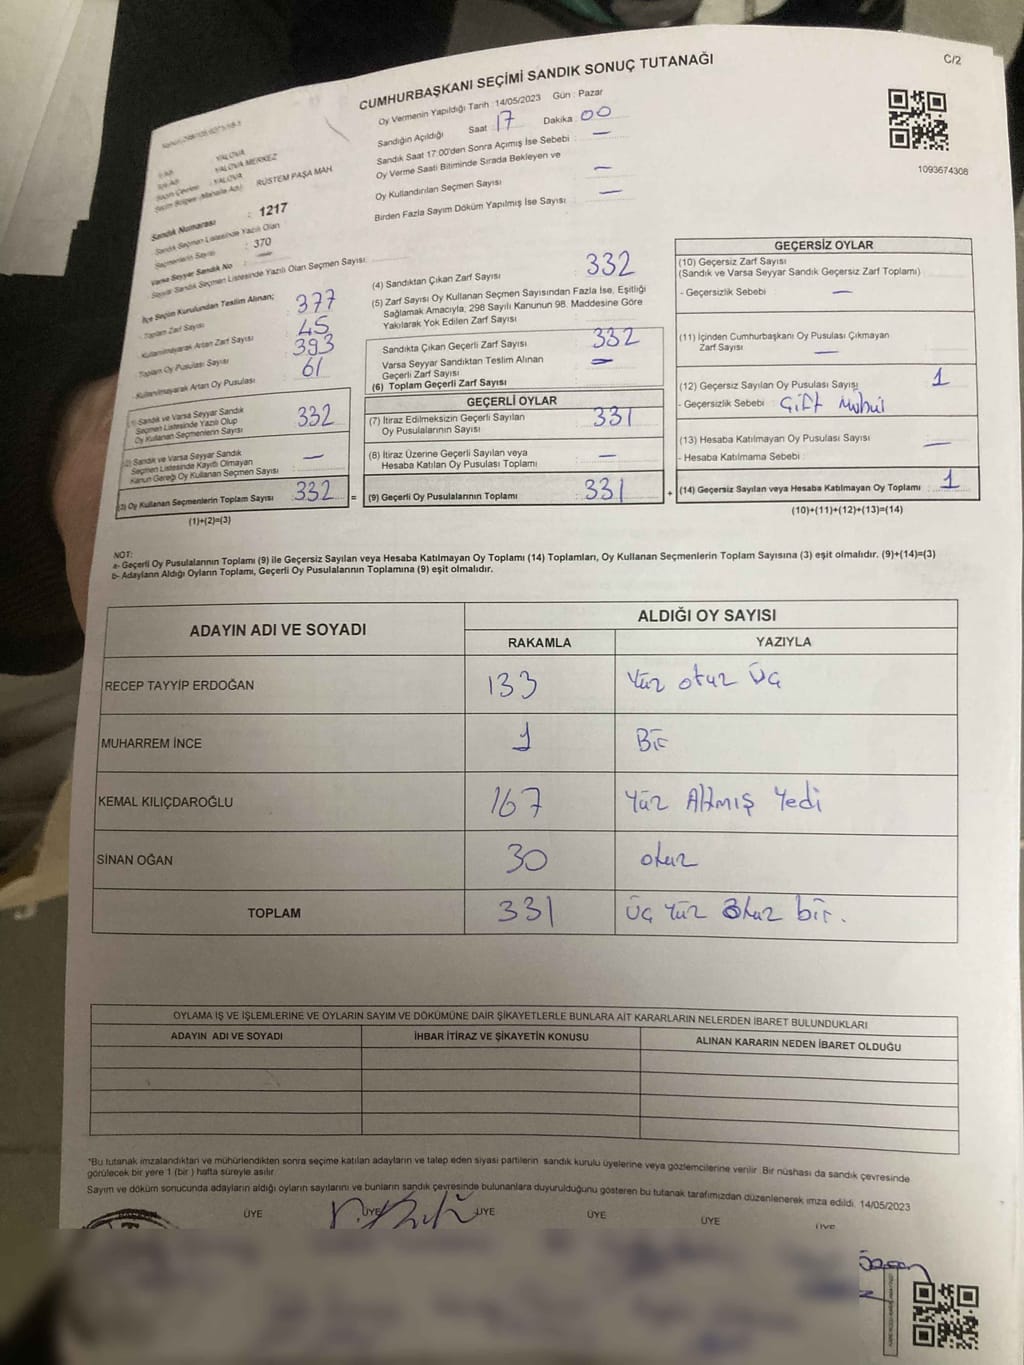 C/2
CUMHURBAŞKANI SEÇİMİ SANDIK SONUÇ TUTANAĞI
Oy Vermenin Yapıldığı Tarih : 14/05/2023 Gün : Pazar
Sandığın Açıldığı Saat 17 Dakika 00
Sandık Saat 17:00'den Sonra Açımış İse Sebebi : —
Oy Verme Saati Bitiminde Sırada Bekleyen ve
Oy Kullandırılan Seçmen Sayısı —
Birden Fazla Sayım Döküm Yapılmış İse Sayısı : —
1093674308
YALOVA
YALOVA MERKEZ
: YALOVA
Seçim Bölgesi (Mahalle Adı) : RÜSTEM PAŞA MAH.
Sandık Numarası : 1217
Sandık Seçmen Listesinde Yazılı Olan
Seçmenlerin Sayısı : 370
Varsa Seyyar Sandık No : —
Seyyar Sandık Seçmen Listesinde Yazılı Olan Seçmen Sayısı:
İlçe Seçim Kurulundan Teslim Alınan;
- Toplam Zarf Sayısı 377
- Kullanılmayarak Artan Zarf Sayısı 45
- Toplam Oy Pusulası Sayısı 393
- Kullanılmayarak Artan Oy Pusulası 61
(1) Sandık ve Varsa Seyyar Sandık
Seçmen Listesinde Yazılı Olup
Oy Kullanan Seçmenlerin Sayısı 332
(2) Sandık ve Varsa Seyyar Sandık
Seçmen Listesinde Kayıtlı Olmayan
Kanun Gereği Oy Kullanan Seçmen Sayısı —
(3) Oy Kullanan Seçmenlerin Toplam Sayısı 332 =
(1)+(2)=(3)
(4) Sandıktan Çıkan Zarf Sayısı 332
(5) Zarf Sayısı Oy Kullanan Seçmen Sayısından Fazla İse, Eşitliği
Sağlamak Amacıyla, 298 Sayılı Kanunun 98. Maddesine Göre
Yakılarak Yok Edilen Zarf Sayısı
Sandıkta Çıkan Geçerli Zarf Sayısı 332
Varsa Seyyar Sandıktan Teslim Alınan
Geçerli Zarf Sayısı —
(6) Toplam Geçerli Zarf Sayısı
GEÇERLİ OYLAR
(7) İtiraz Edilmeksizin Geçerli Sayılan
Oy Pusulalarının Sayısı 331
(8) İtiraz Üzerine Geçerli Sayılan veya
Hesaba Katılan Oy Pusulası Toplamı —
(9) Geçerli Oy Pusulalarının Toplamı 331 +
GEÇERSİZ OYLAR
(10) Geçersiz Zarf Sayısı
(Sandık ve Varsa Seyyar Sandık Geçersiz Zarf Toplamı)
- Geçersizlik Sebebi : —
(11) İçinden Cumhurbaşkanı Oy Pusulası Çıkmayan
Zarf Sayısı —
(12) Geçersiz Sayılan Oy Pusulası Sayısı 1
- Geçersizlik Sebebi : Çift Mühür
(13) Hesaba Katılmayan Oy Pusulası Sayısı —
- Hesaba Katılmama Sebebi :
(14) Geçersiz Sayılan veya Hesaba Katılmayan Oy Toplamı : 1
(10)+(11)+(12)+(13)=(14)
NOT:
a- Geçerli Oy Pusulalarının Toplamı (9) ile Geçersiz Sayılan veya Hesaba Katılmayan Oy Toplamı (14) Toplamları, Oy Kullanan Seçmenlerin Toplam Sayısına (3) eşit olmalıdır. (9)+(14)=(3)
b- Adayların Aldığı Oyların Toplamı, Geçerli Oy Pusulalarının Toplamına (9) eşit olmalıdır.
ADAYIN ADI VE SOYADI ALDIĞI OY SAYISI
RAKAMLA YAZIYLA
RECEP TAYYİP ERDOĞAN 133 Yüz otuz üç
MUHARREM İNCE 1 Bir
KEMAL KILIÇDAROĞLU 167 Yüz Altmış Yedi
SİNAN OĞAN 30 otuz
TOPLAM 331 Üç Yüz Otuz bir.
OYLAMA İŞ VE İŞLEMLERİNE VE OYLARIN SAYIM VE DÖKÜMÜNE DAİR ŞİKAYETLERLE BUNLARA AİT KARARLARIN NELERDEN İBARET BULUNDUKLARI
ADAYIN ADI VE SOYADI İHBAR İTİRAZ VE ŞİKAYETİN KONUSU ALINAN KARARIN NEDEN İBARET OLDUĞU
*Bu tutanak imzalandıktan ve mühürlendikten sonra seçime katılan adayların ve talep eden siyasi partilerin sandık kurulu üyelerine veya gözlemcilerine verilir. Bir nüshası da sandık çevresinde
görülecek bir yere 1 (bir ) hafta süreyle asılır.
Sayım ve döküm sonucunda adayların aldığı oyların sayılarını ve bunların sandık çevresinde bulunanlara duyurulduğunu gösteren bu tutanak tarafımızdan düzenlenerek imza edildi. 14/05/2023
ÜYE ÜYE ÜYE ÜYE ÜYE ÜYE